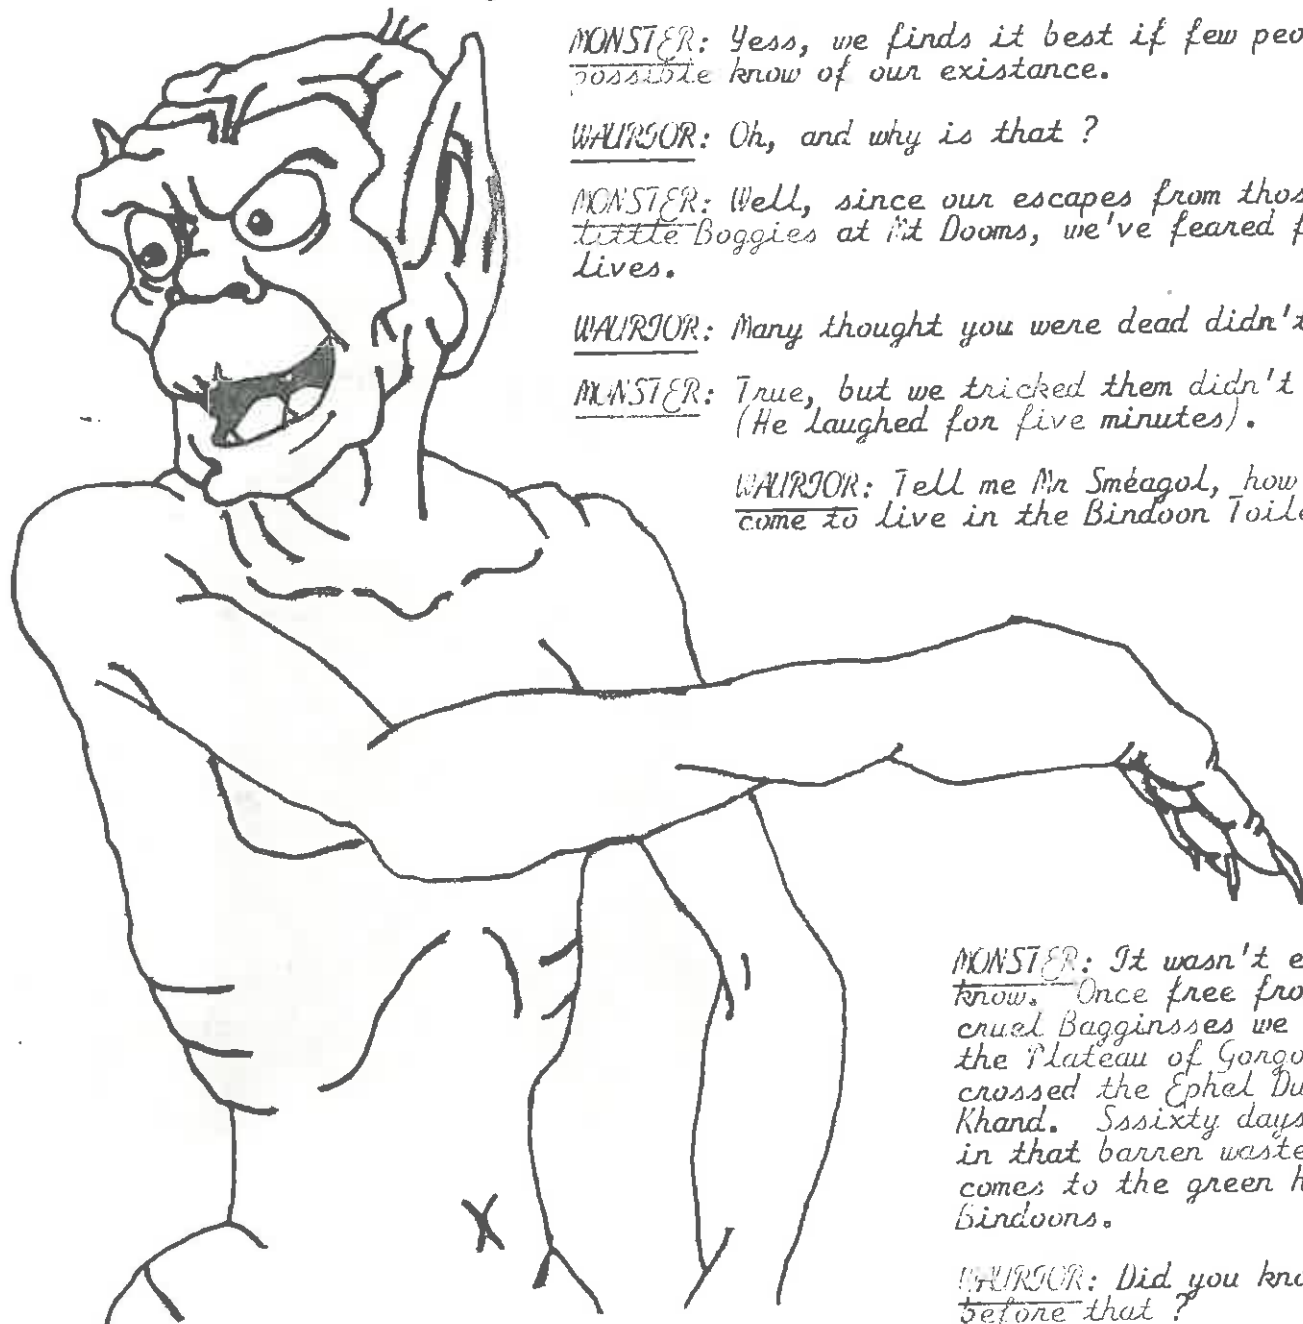 MONSTER: Yess, we finds it best if few peo
possible know of our existance.
WAURIOR: Oh, and why is that ?
MONSTER: Well, since our escapes from thos
little Boggies at Mt Dooms, we've feared f
lives.
WAURIOR: Many thought you were dead didn't
MONSTER: True, but we tricked them didn't
(He laughed for five minutes).
WAURIOR: Tell me Mr Sméagol, how
come to live in the Bindoon Toile
MONSTER: It wasn't e
know. Once free fro
cruel Bagginsses we
the Plateau of Gorgo
crossed the Ephel Du
Khand. Sssixty days
in that barren waste
comes to the green h
Bindoons.
WAURIOR: Did you kno
before that ?